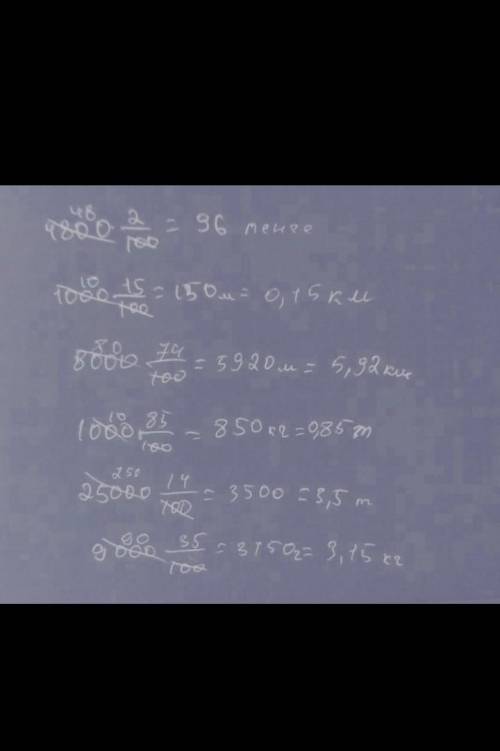 48
4800 2/100 = 96 тенге
10
1000 15/100 = 150 м = 0,15 км
80
8000 74/100 = 5920 м = 5,92 км
10
1000 85/100 = 850 кг = 0,85 т
250
25000 14/100 = 3500 = 3,5 т
90
9000 35/100 = 3150 г = 3,15 кг